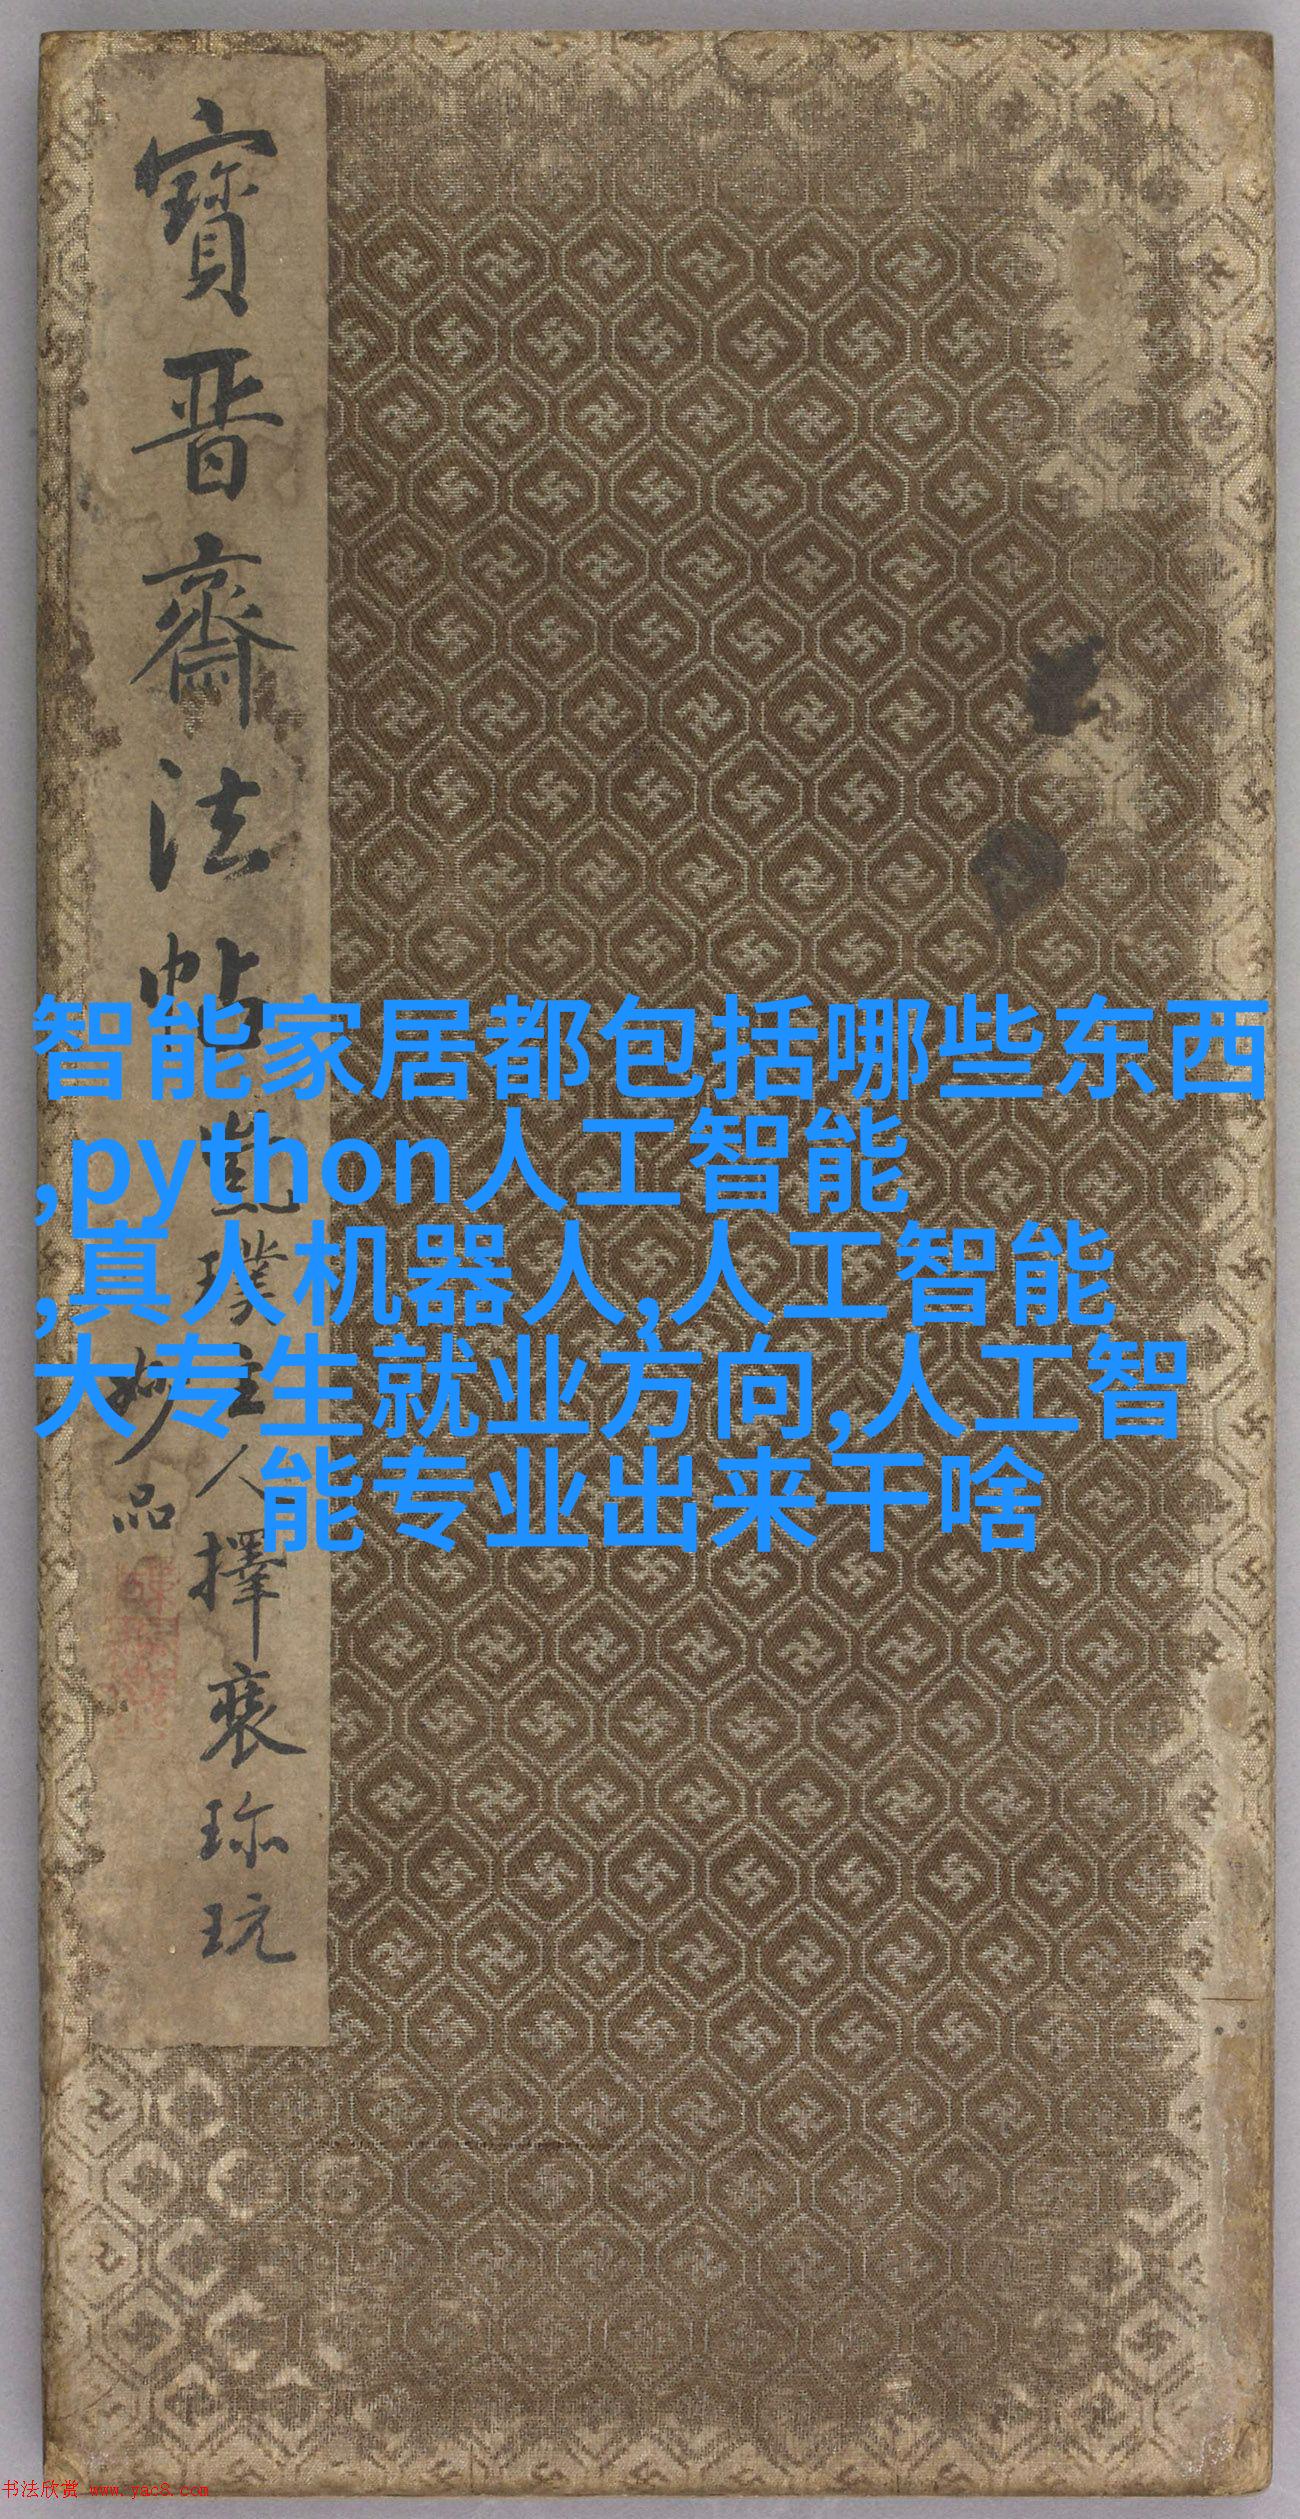 寳晋齋法帖
璞主人擇裒珎玩
妙品
智能家居都包括哪些东西
,python人工智能
,真人机器人,人工智能
大专生就业方向,人工智
能专业出来干啥
书法欣赏 www.yac8.com